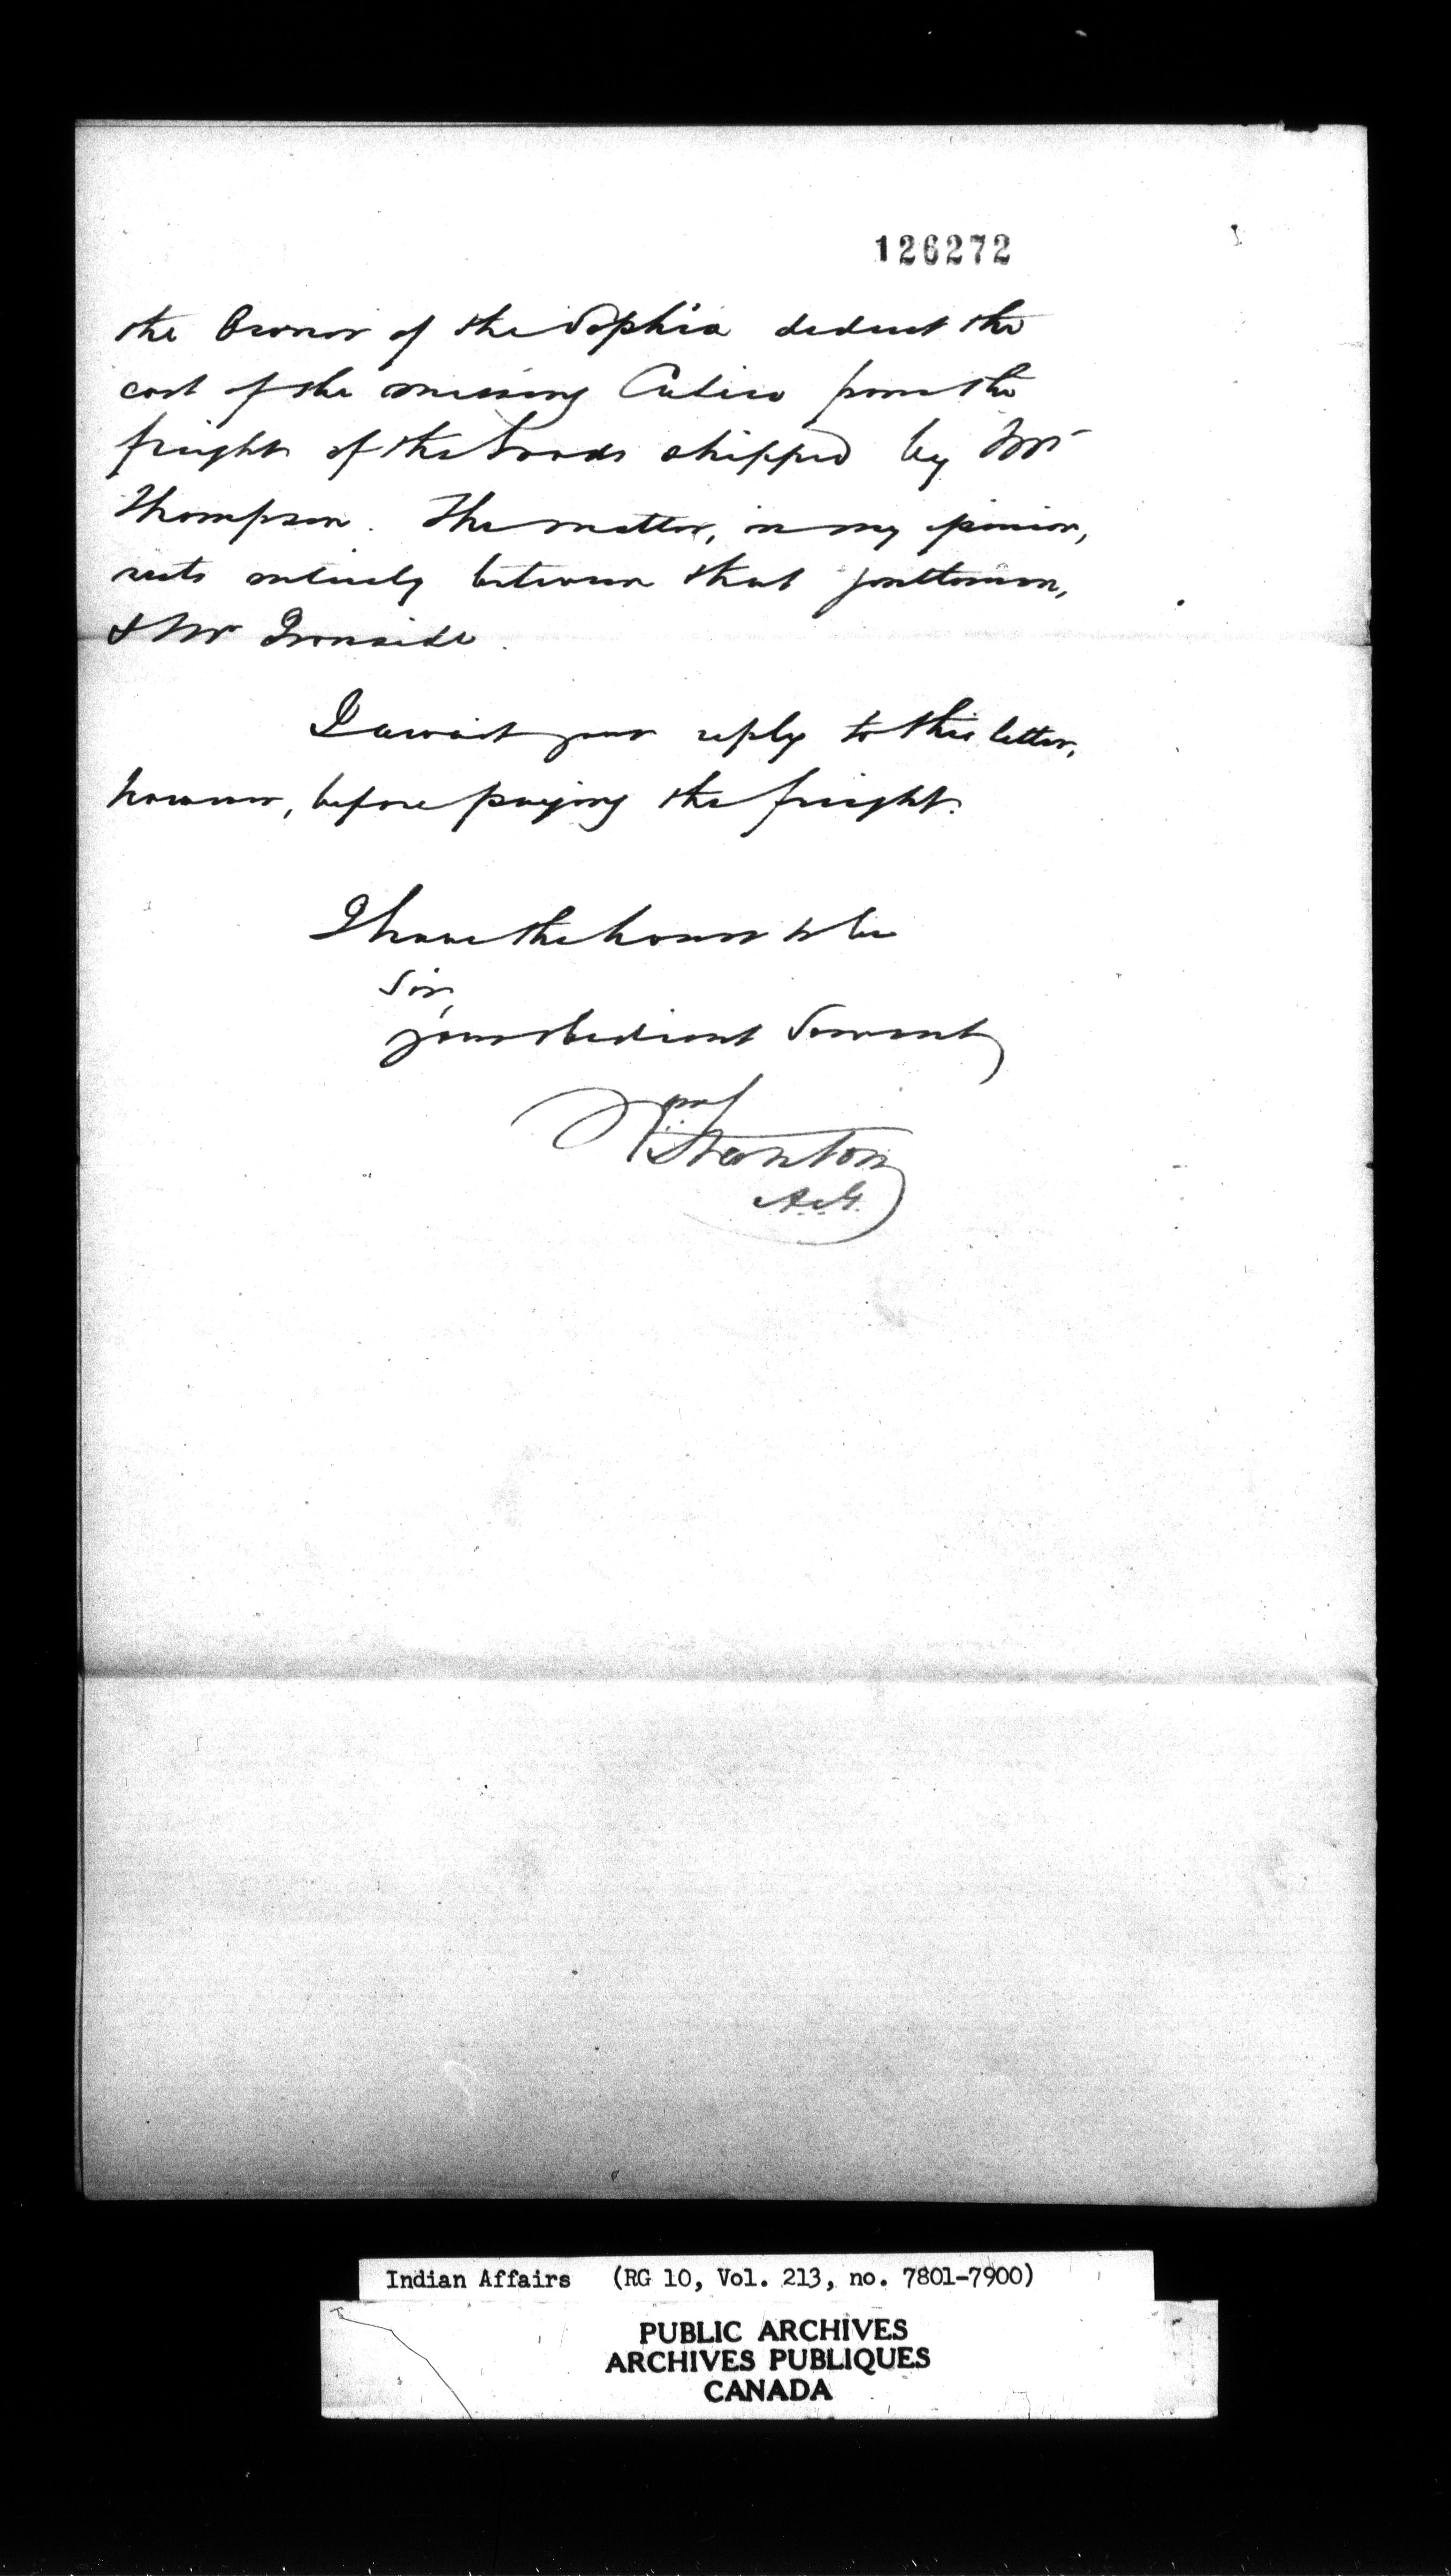 126272
the Owner of the Sophia deduct the
cost of the missing Calico from the
freight of the Goods shipped by Mr
Thompson. The matter, in my opinion,
rests entirely between that gentleman,
& Mr Ironside.
I await your reply to this letter,
however, before paying the freight.
I have the honor to be
Sir,
your obedient Servant
Wm Stanton
Indian Affairs (RG 10, Vol. 213, no. 7801-7900)
PUBLIC ARCHIVES
ARCHIVES PUBLIQUES
CANADA